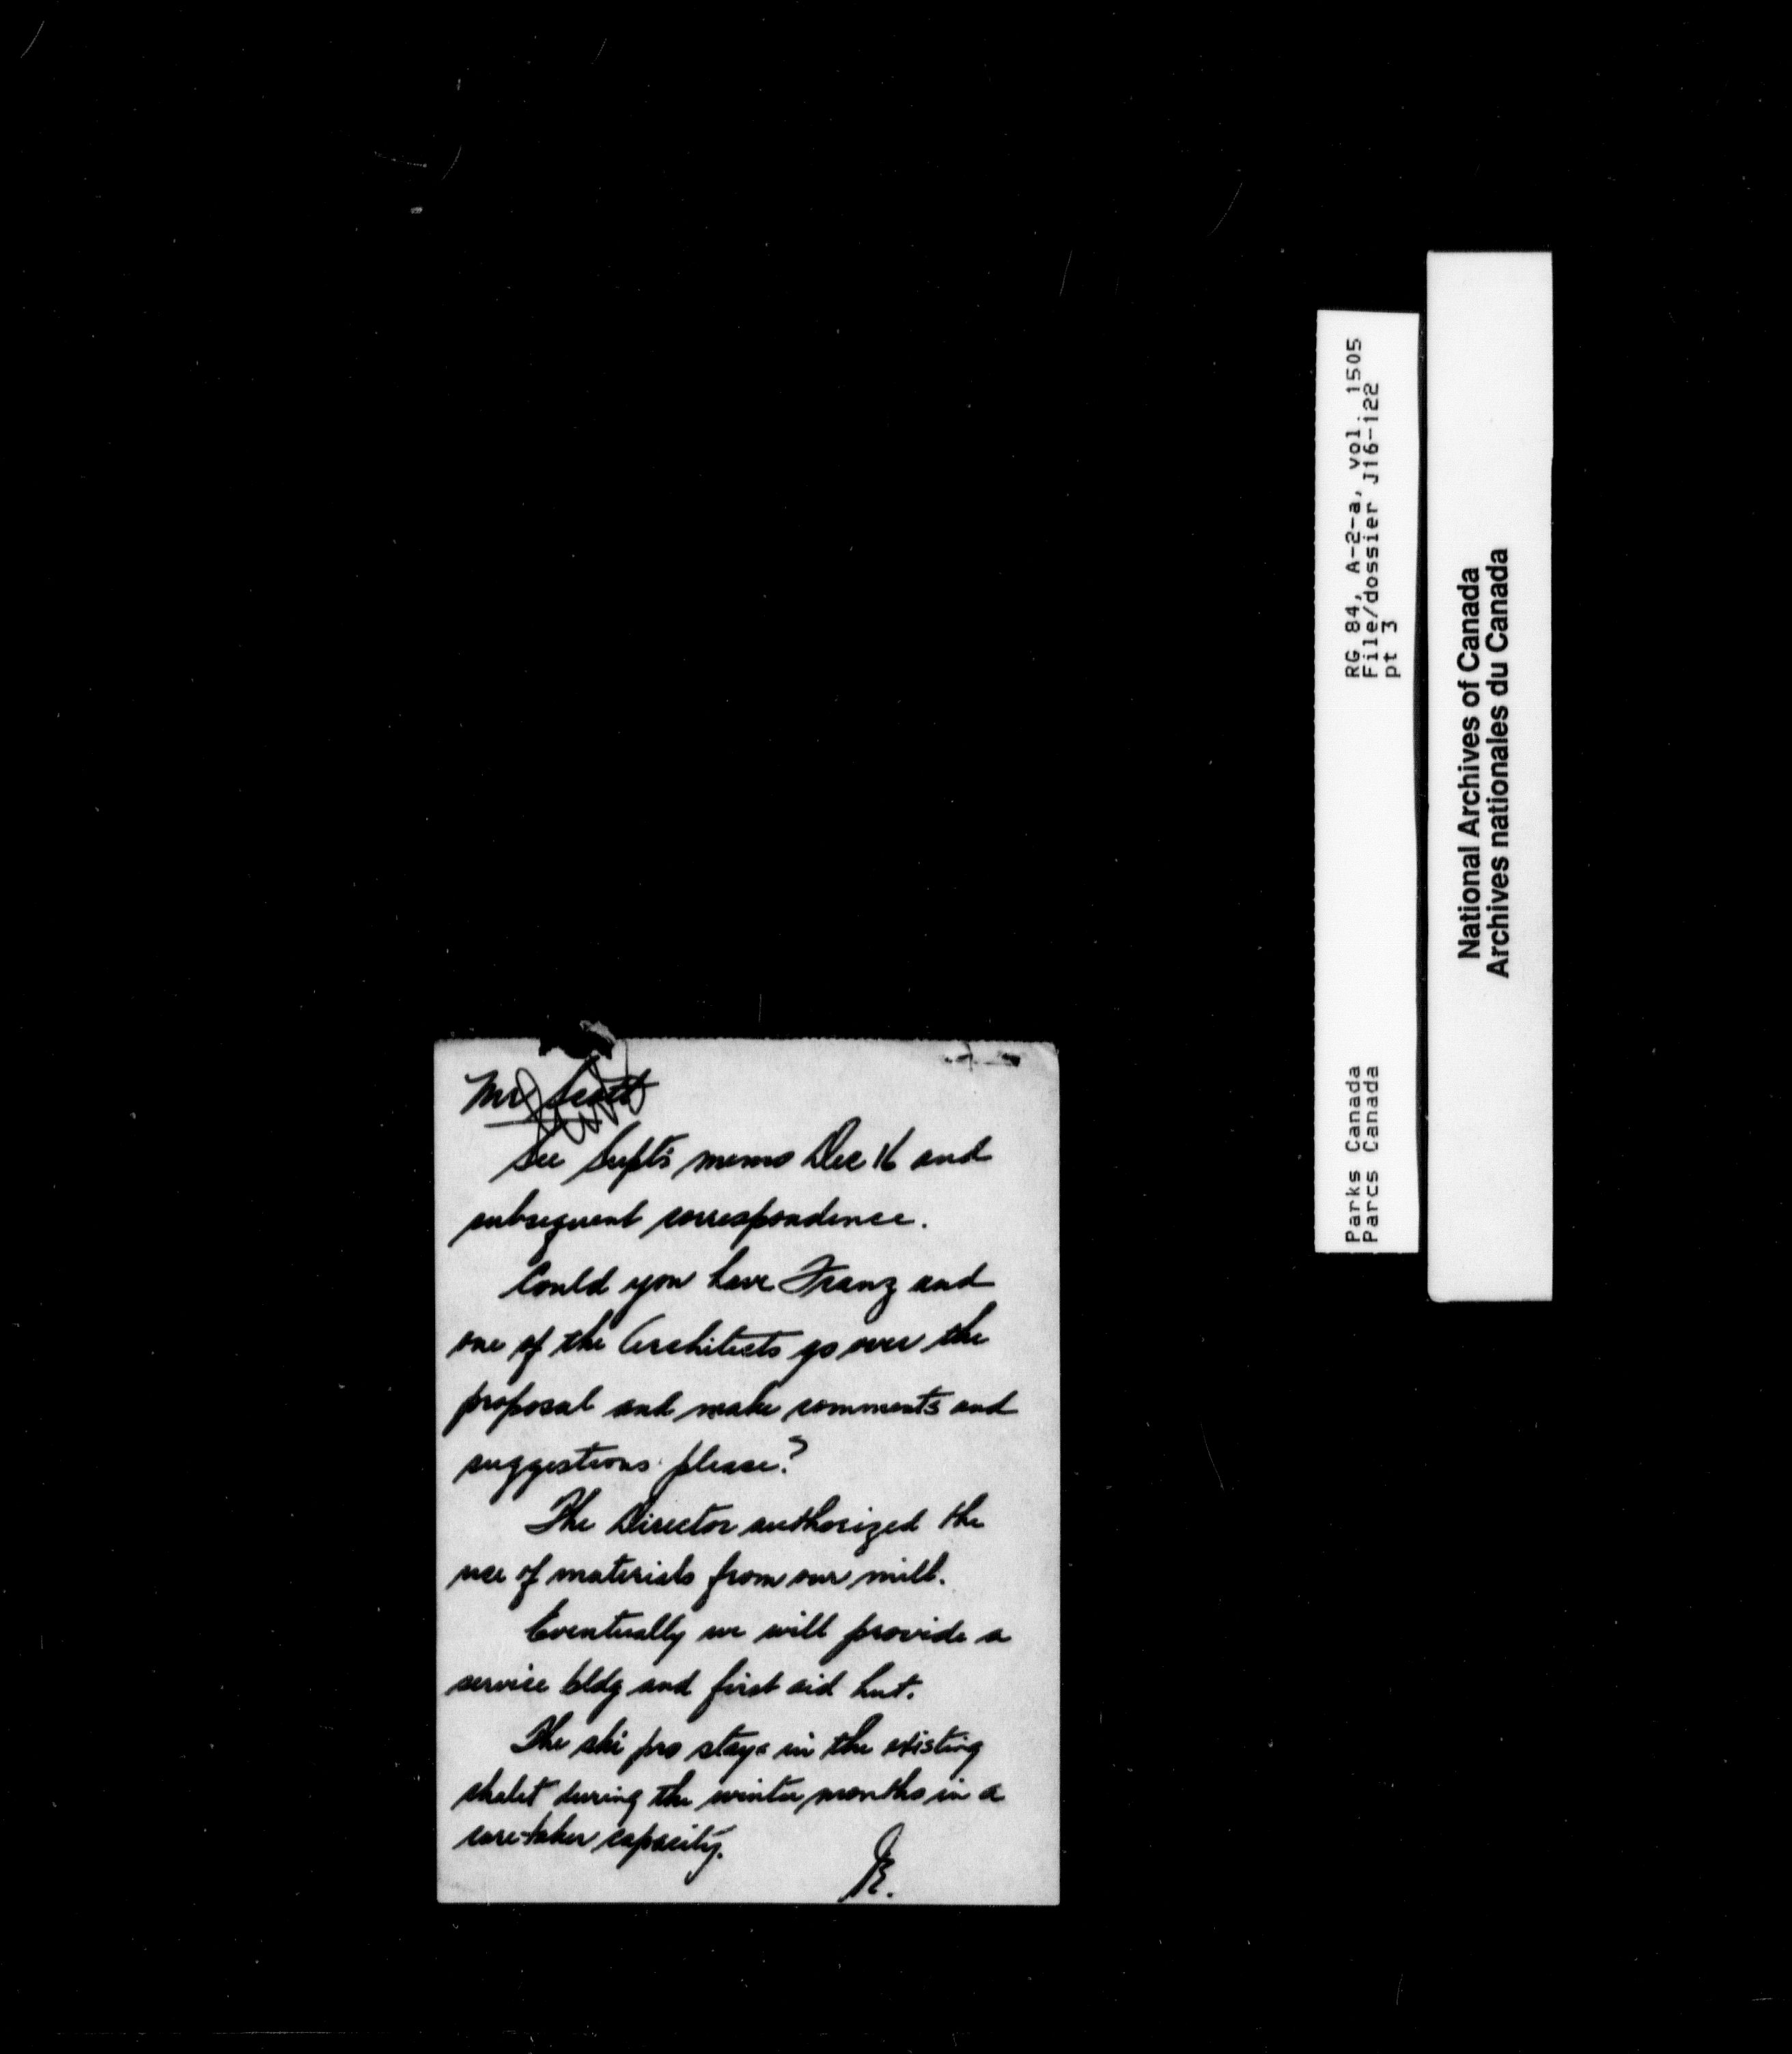 Mr Scott
See Supt's memo Dec 16 and
subsequent correspondence.
Could you have Franz and
one of the Architects go over the
proposal and make comments and
suggestions please?
The Director authorized the
use of materials from our mill.
Eventually we will provide a
service bldg and first aid hut.
The ski pro stays in the existing
chalet during the winter months in a
care-taker capacity.
RG 84, A-2-a, vol. 1505
File/dossier J16-122
pt 3
Parks Canada
Parcs Canada
National Archives of Canada
Archives nationales du Canada